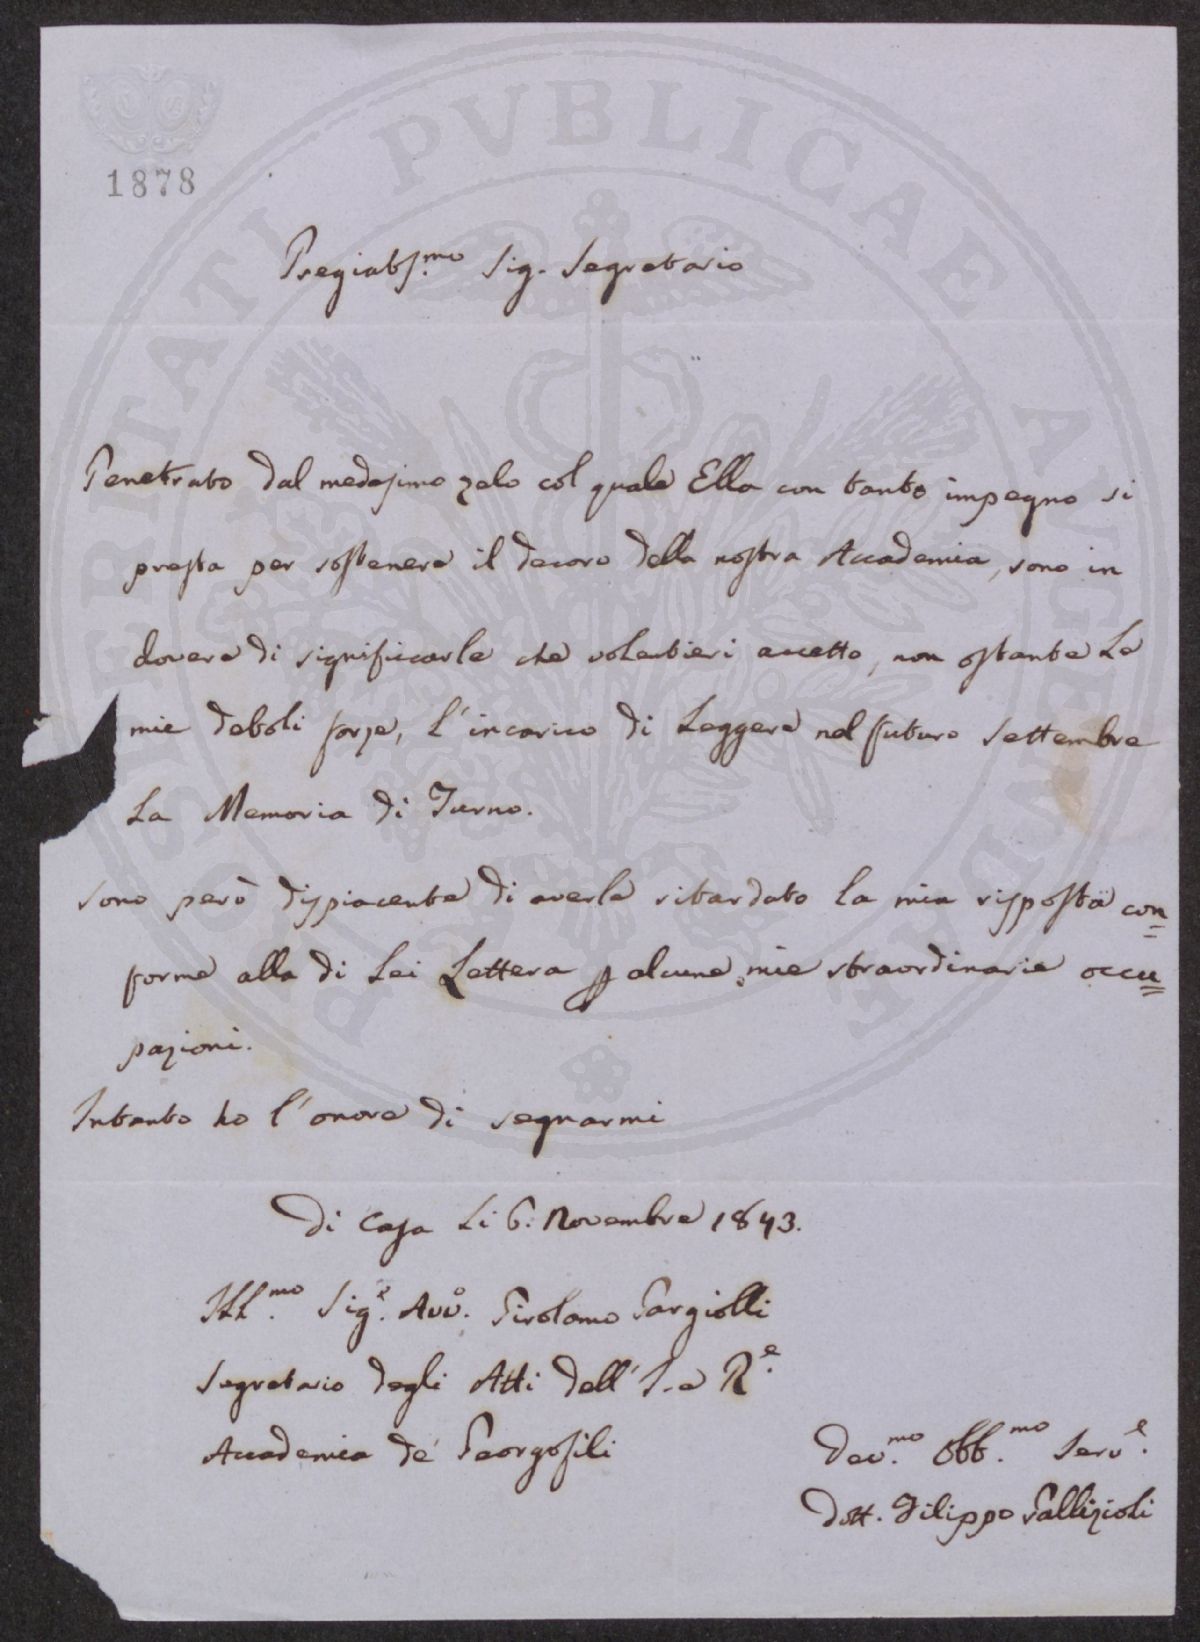 PROSPERITATI PVBLICAE AVGENDAE
1878
Pregiatis.mo Sig. Segretario
Penetrato dal medesimo zelo col quale Ella con tanto impegno si
presta per sostenere il decoro della nostra Accademia, sono in
dovere di significarle che volentieri accetto, non ostante le
mie deboli forze, l'incarico di leggere nel futuro Settembre
la Memoria di Turno.
Sono però dispiacente di averle ritardato la mia risposta con=
forme alla di Lei Lettera p alcune mie straordinarie occu=
pazioni.
Intanto ho l'onore di segnarmi
Di Casa li 6. Novembre 1843.
Ill.mo Sig.e Avv.o Girolamo Gargiolli
Segretario degli Atti dell' I. e R.e
Accademia de' Georgofili
Dev.mo Obb.mo Serv.e
Dott. Filippo Gallizioli